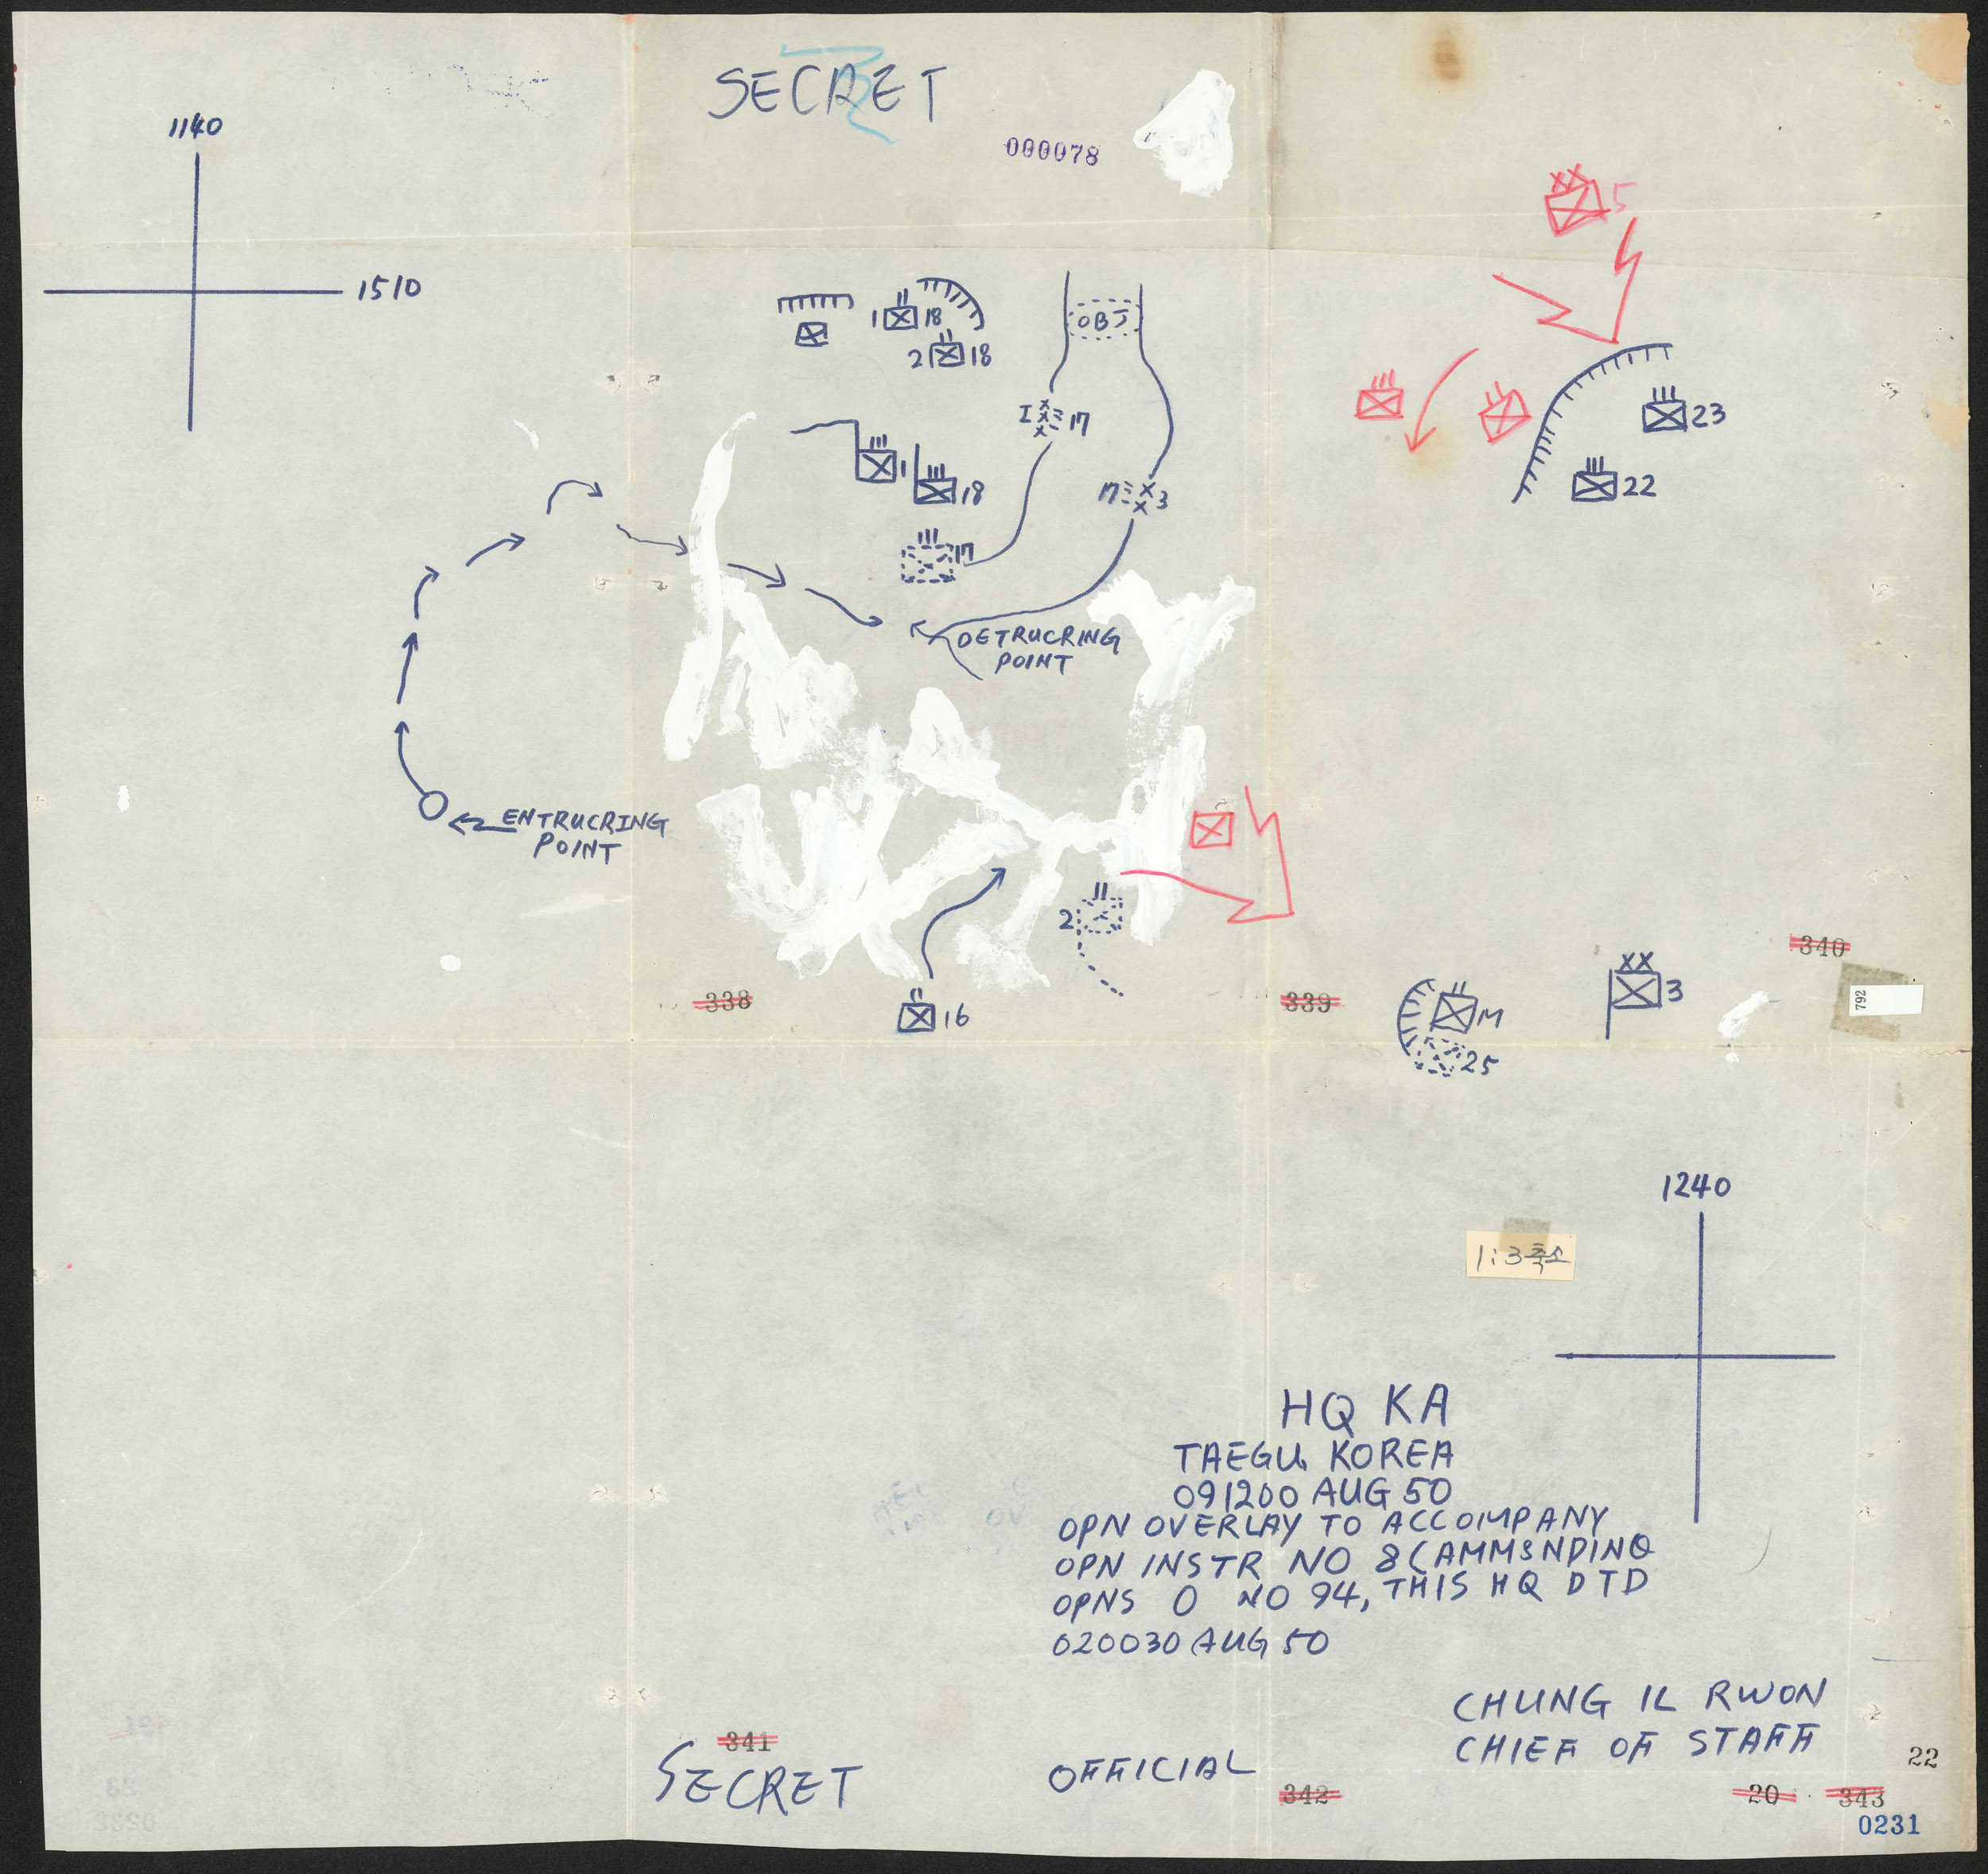 SECRET
000078
1140
1510
5
1 18
2 18
OBJ
I 17
17 3
1
18
17
23
22
DETRUCRING
POINT
ENTRUCRING
POINT
2
16
338
339
340
M
25
3
792
1240
1:3축소
HQ KA
TAEGU, KOREA
091200 AUG 50
OPN OVERLAY TO ACCOMPANY
OPN INSTR NO 8 (AMMSNDINQ
OPNS O NO 94, THIS HQ DTD
020030 AUG 50
CHUNG IL RWON
CHIEF OF STAFF
341
SECRET
OFFICIAL
342
22
20
343
0231